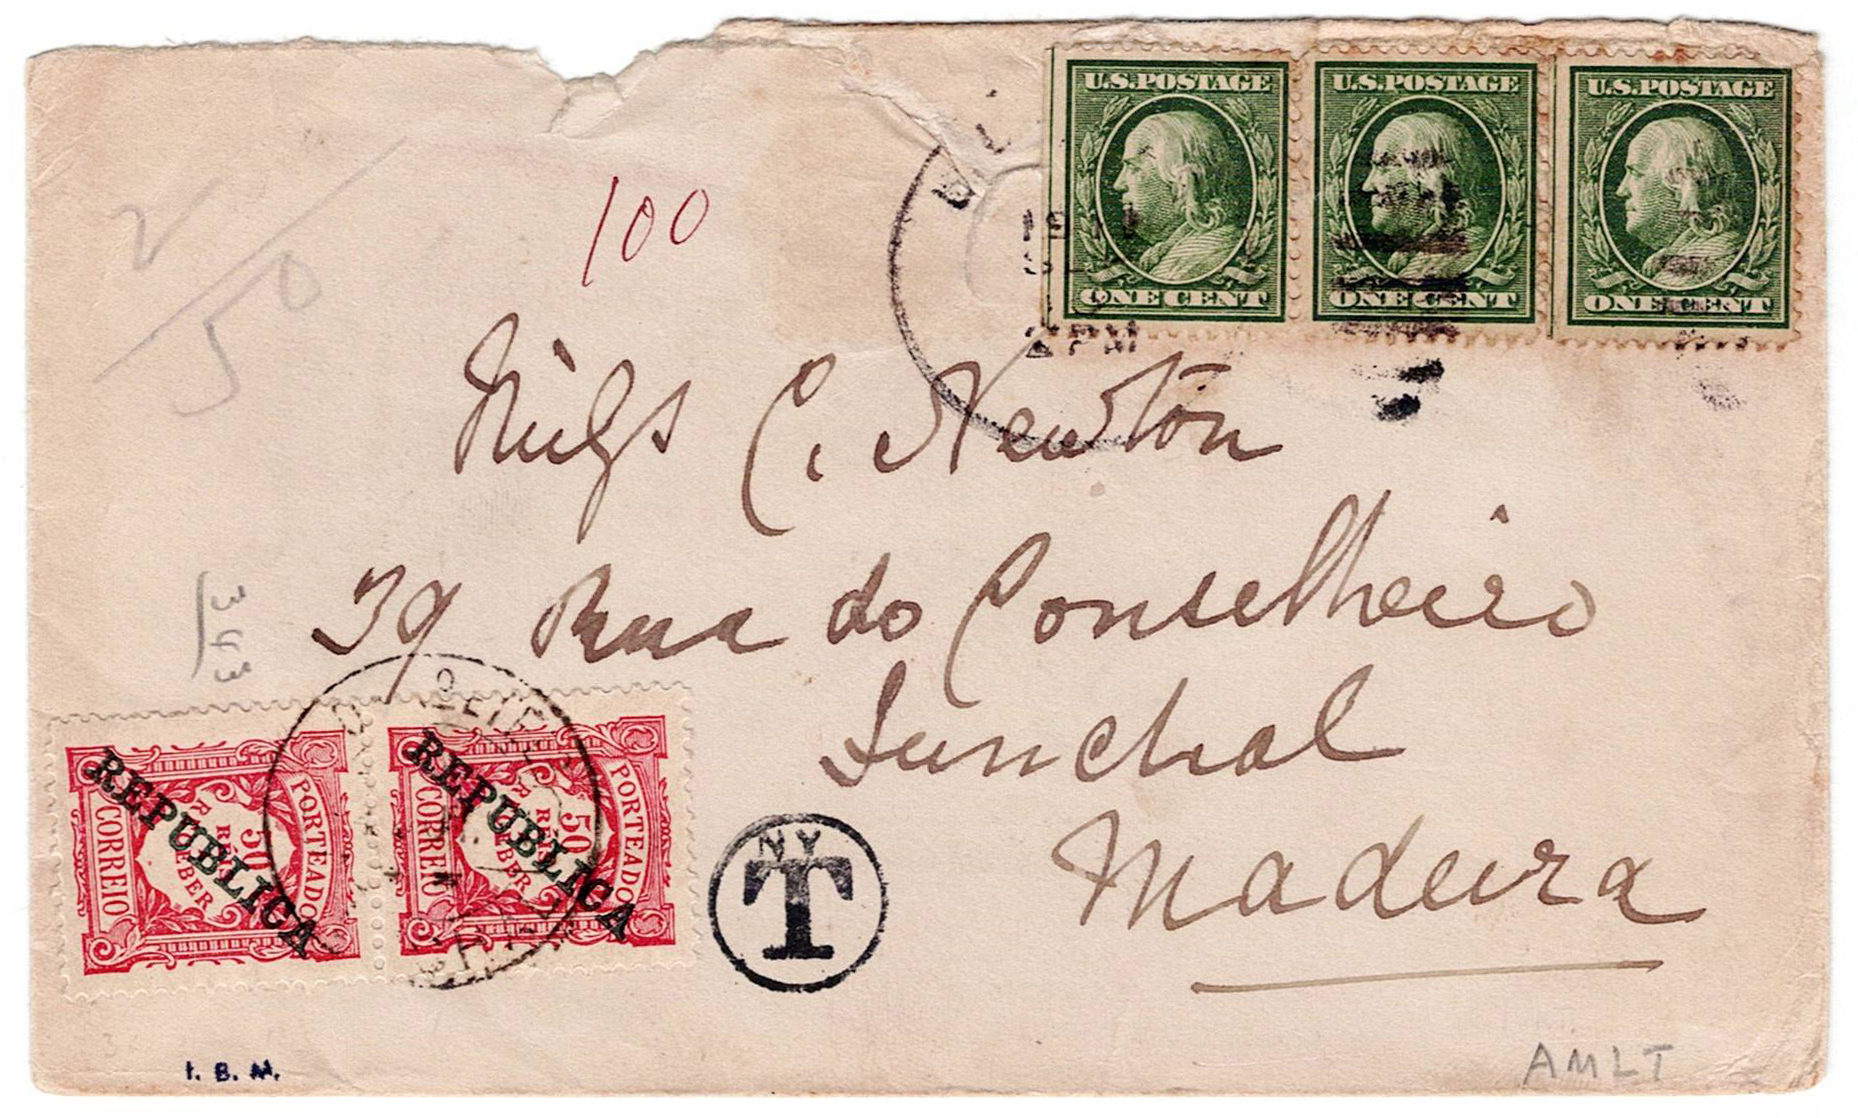 U.S.POSTAGE
ONE CENT
U.S.POSTAGE
ONE CENT
U.S.POSTAGE
ONE CENT
2 PM
100
50
Miss C. Newton
39 Rua do Conselheiro
Funchal
Madeira
PORTEADO
50
RÉIS
CORREIO
REPUBLICA
PORTEADO
50
RÉIS
CORREIO
REPUBLICA
NY
T
I. B. M.
AMLT